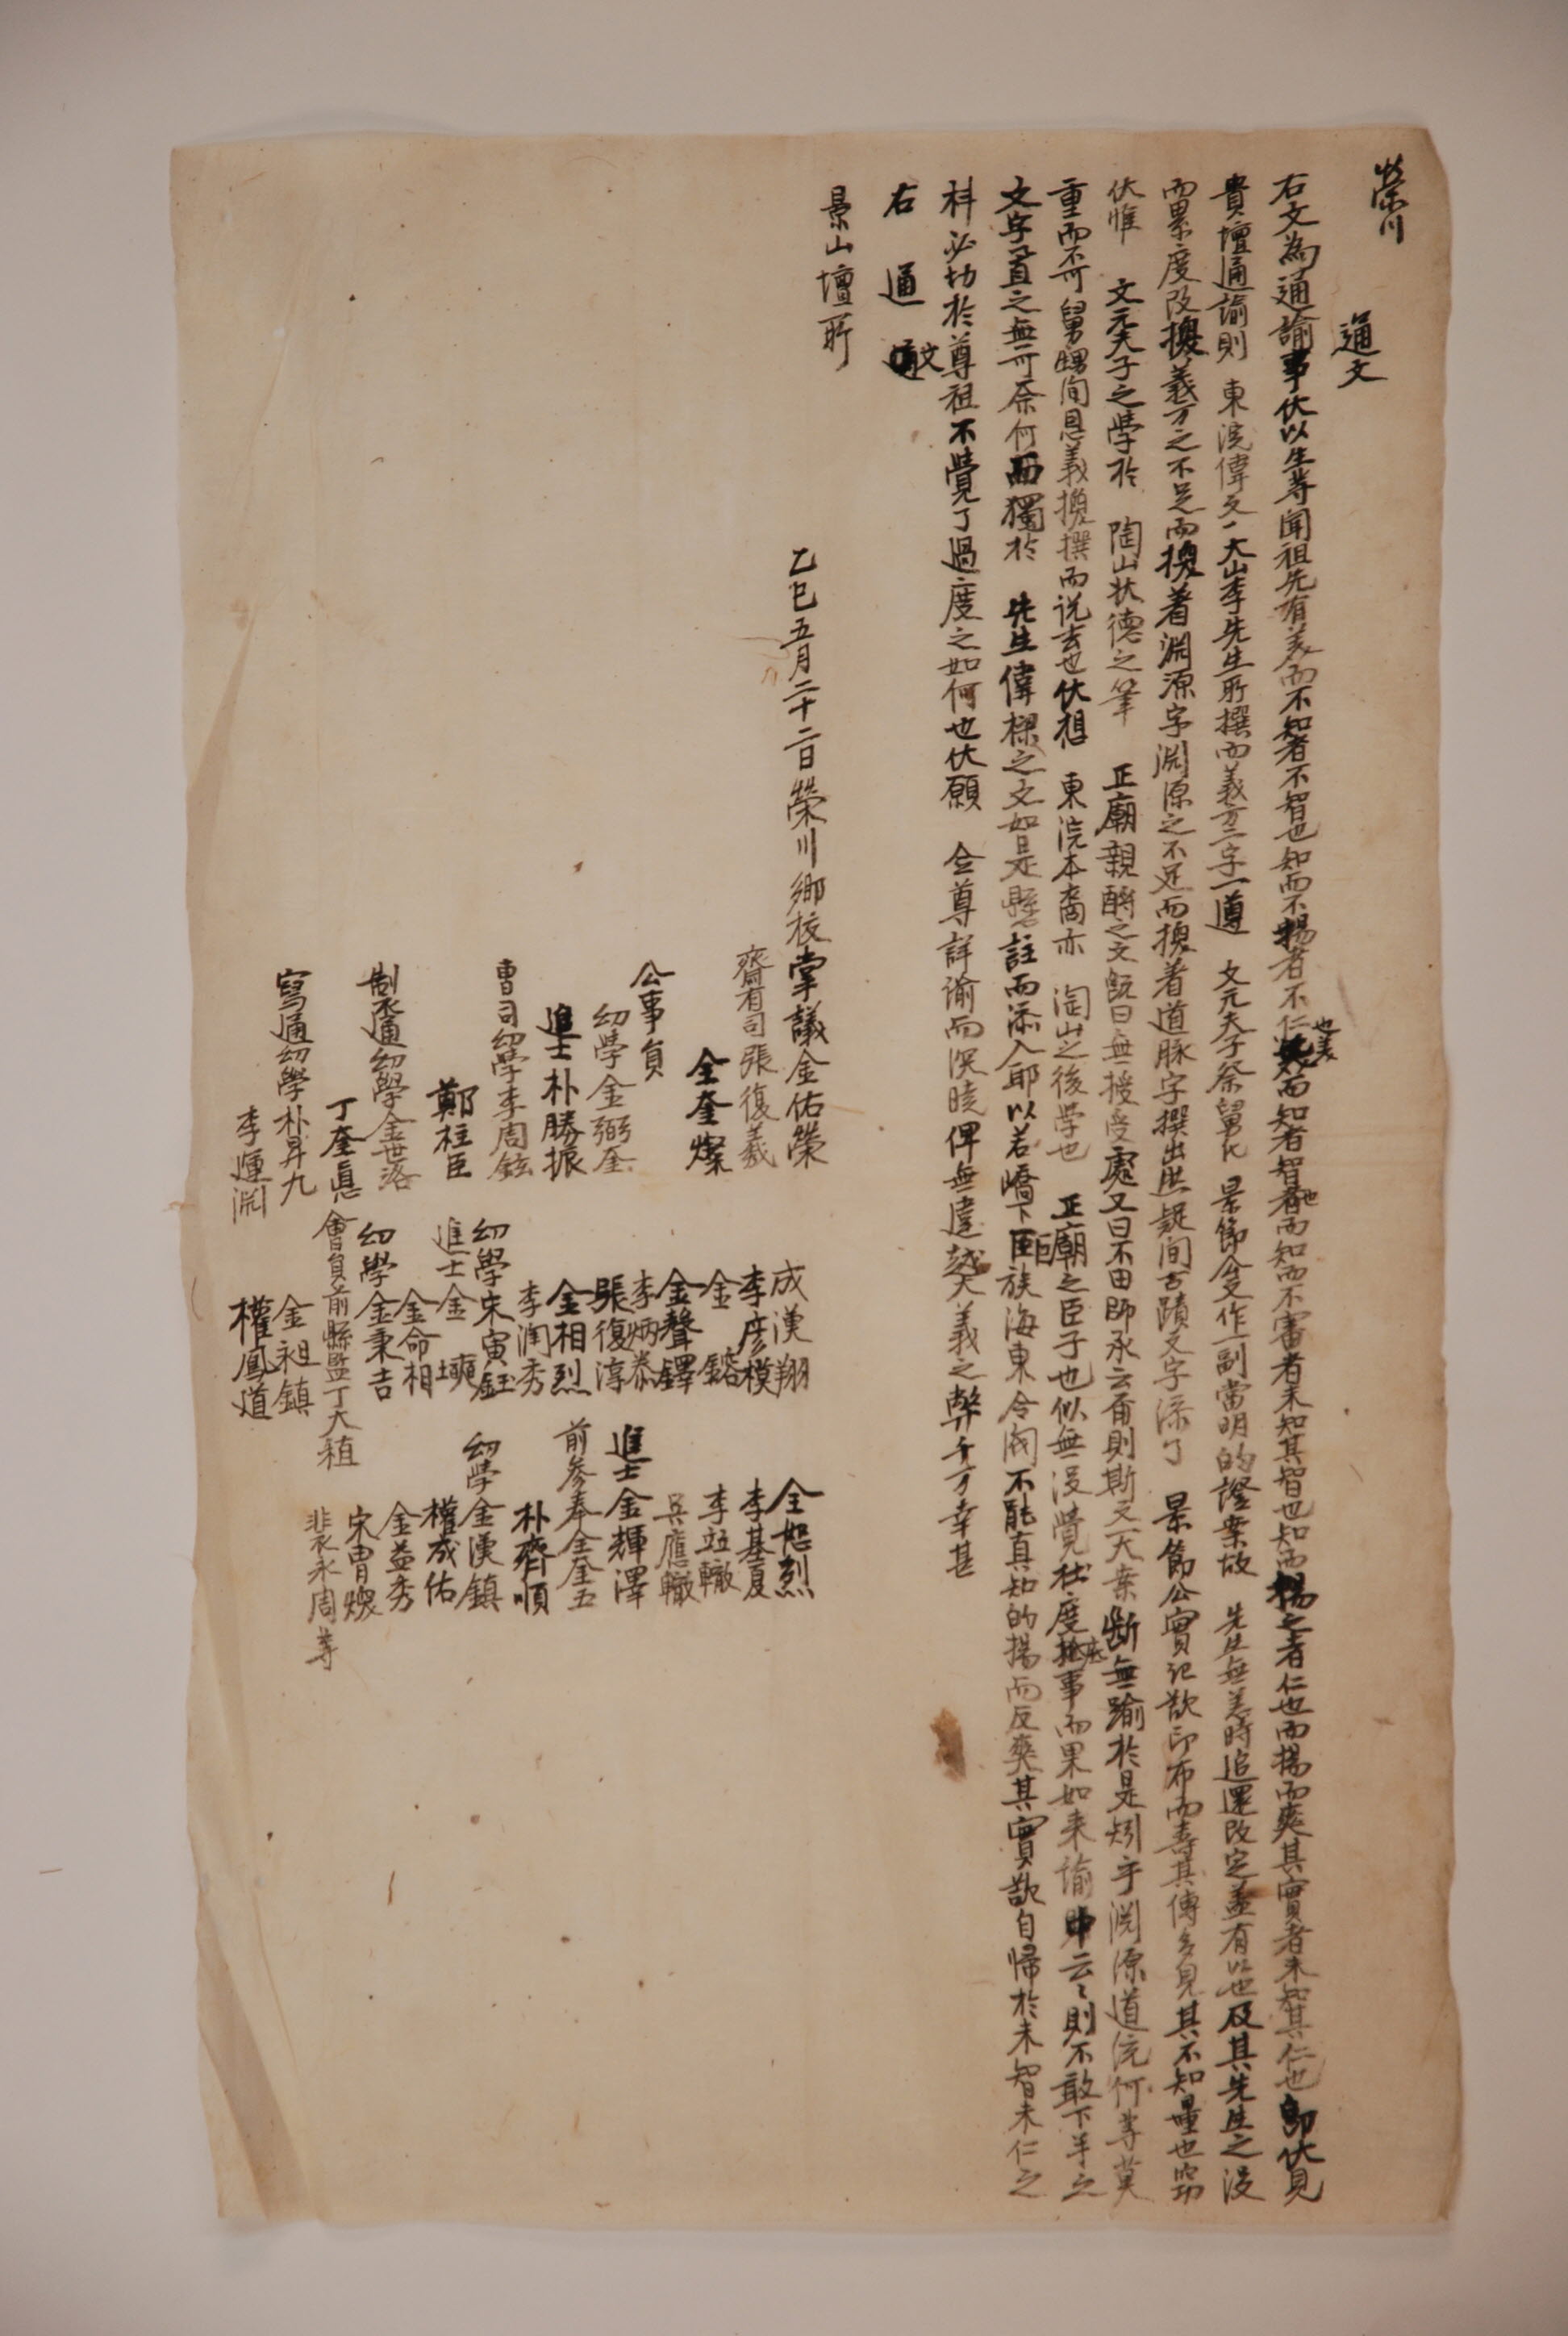 榮川
通文
右文為通諭事伏以生等聞祖先有美而不知者不智也知而不揚者不仁也美而知者智也而知而不審者未知其智也知而揚之者仁也而揚而爽其實者未知其仁也即伏見
貴壇通諭則 東浣偉文一大山李先生所撰而義方二字一遵 文元夫子祭舅氏 景節公文作一副當明的證案故 先生無恙時追還改定蓋有以也及其先生之沒
而累度改換義方之不足而換着淵源字淵源之不足而換着道脉字撰出洪疑間古蹟文字添了 景節公實記歆印布而壽其傳多見其不知量也竊
伏惟 文元夫子之學於 陶山狀德之筆 正廟親酹之文旣曰無授受處又曰不由師承云甭則斯文大案斷無踰於是矧乎淵源道統何等莫
重而不可舅甥間恩義攙撰而说去也伏想 東浣本裔亦 陶山之後学也 正廟之臣子也似無沒覺杜度底事而果如来諭中云々則不敢下手之
文字置之無可奈何而獨於 先生偉樑之文如是懸註而添入耶以若嶠下巨族海東令閥不能真知的揚而反爽其實歆自歸於未智未仁之
科必切於尊祖不覺了過度之如何也伏願 僉尊詳諭而深曉俾無違越大義之弊千万幸甚
右通文
景山壇所
乙巳五月二十二日榮川鄉校掌議金佑榮
齋有司張復羲
全奎燦
公事員
幼學金弼奎
進士朴勝振
曺司幼學李周鉉
鄭柱臣
制通幼學金世洛
丁奎悳
寫通幼學朴昇九
李運淵
成漢翔
李彦模
金鎔
金聲鐸
李炳泰
張復淳
金相烈
李潤秀
幼學宋寅鈺
進士金𡒍
金命相
幼學金秉吉
會員前縣監丁大稙
金祖鎮
權鳳道
全恕烈
李基夏
李竝轍
吴應轍
進士金輝澤
前參奉全奎五
朴齊順
幼學金漢鎮
權成佑
金益秀
宋胄煥
裴永周等